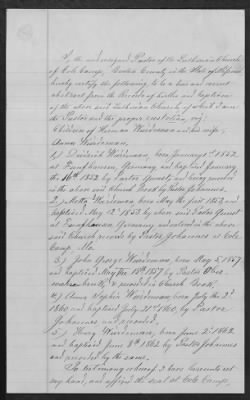 I, the undersigned Pastor of the Lutheran Church
of Cole Camp, Benton County in the State of Missouri
hereby certify the following to be a true and correct
abstract from the Records of births and baptism
of the above said Lutheran Church of which I am
the Pastor and the proper custodian, viz:
Children of Herman and his wife,
Anna
1.) Diedrich, born January 1st 1852
at, Germany and baptized January
the 16th 1852 by Pastor and being recorded
in the above said Church Book by Pastor Johannes.
2.) Metta, born May the first 1853, and
baptized May 12th 1853 by above said Pastor
at Germany and entered in the above
said Church records by Pastor Johannes at Cole
Camp, Mo.
3.) John George, born May 5, 1857
and baptized May 1857 by Pastor
& recorded in Church Book.
4.) Anna Sophie, born July the 2d
1860 and baptized July 21st 1860, by Pastor
Johannes and recorded.
5.) Henry, born June 2d 1862
and baptized June 9th 1862 by Pastor Johannes
and recorded by the same.
In testimony whereof I have hereunto set
my hand, and affixed the seal at Cole Camp,